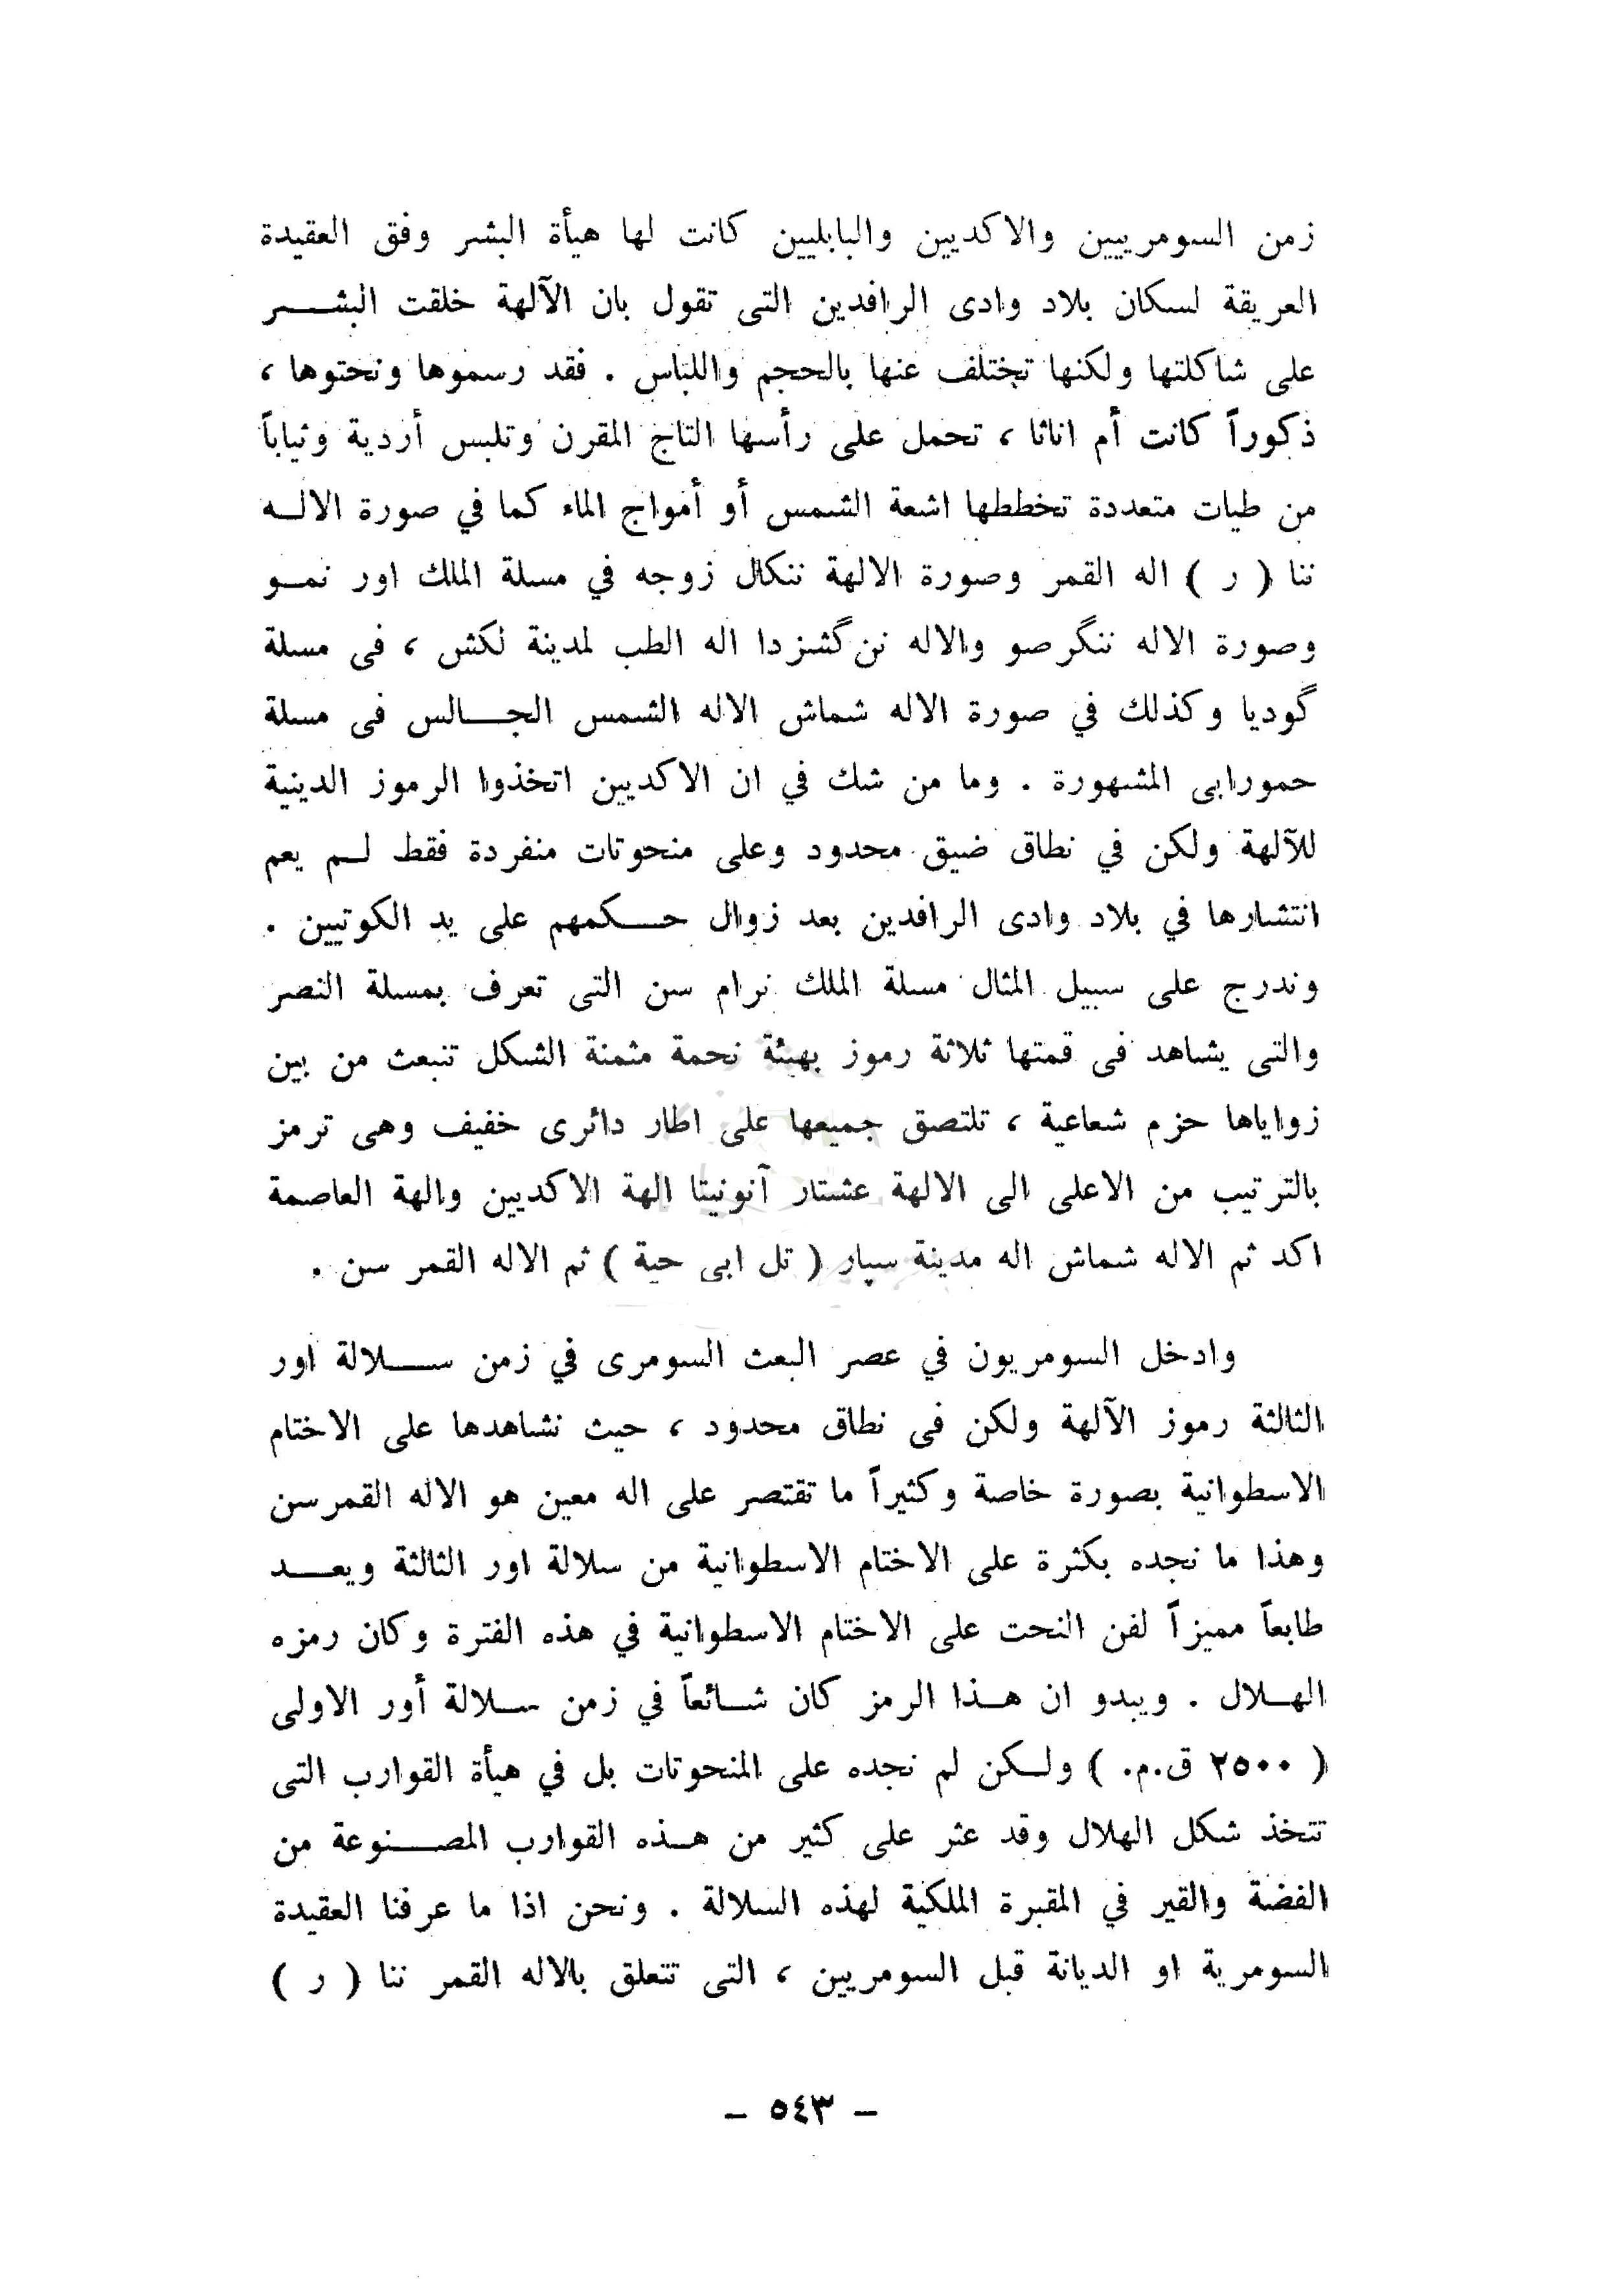 زمن السومريين والاكديين والبابليين كانت لها هيأة البشر وفق العقيدة
العريقة لسكان بلاد وادى الرافدين التى تقول بان الآلهة خلقت البشر
على شاكلتها ولكنها تختلف عنها بالحجم واللباس . فقد رسموها ونحتوها ،
ذكوراً كانت أم اناثا ، تحمل على رأسها التاج المقرن وتلبس أردية وثياباً
من طيات متعددة تخططها اشعة الشمس أو أمواج الماء كما في صورة الاله
ننا ( ر ) اله القمر وصورة الالهة ننكال زوجه في مسلة الملك اور نمو
وصورة الاله ننگرصو والاله نن گشزدا اله الطب لمدينة لكش ، فى مسلة
گوديا وكذلك في صورة الاله شماش الاله الشمس الجالس فى مسلة
حمورابى المشهورة . وما من شك في ان الاكديين اتخذوا الرموز الدينية
للآلهة ولكن في نطاق ضيق محدود وعلى منحوتات منفردة فقط لم يعم
انتشارها في بلاد وادى الرافدين بعد زوال حكمهم على يد الكوتيين .
وندرج على سبيل المثال مسلة الملك نرام سن التى تعرف بمسلة النصر
والتى يشاهد فى قمتها ثلاثة رموز بهيئة نجمة مثمنة الشكل تنبعث من بين
زواياها حزم شعاعية ، تلتصق جميعها على اطار دائرى خفيف وهى ترمز
بالترتيب من الاعلى الى الالهة عشتار آنونيتا الهة الاكديين والهة العاصمة
اكد ثم الاله شماش اله مدينة سپار ( تل ابى حبة ) ثم الاله القمر سن .
وادخل السومريون في عصر البعث السومرى في زمن سلالة اور
الثالثة رموز الآلهة ولكن فى نطاق محدود ، حيث نشاهدها على الاختام
الاسطوانية بصورة خاصة وكثيراً ما تقتصر على اله معين هو الاله القمر سن
وهذا ما نجده بكثرة على الاختام الاسطوانية من سلالة اور الثالثة ويعد
طابعاً مميزاً لفن النحت على الاختام الاسطوانية في هذه الفترة وكان رمزه
الهلال . ويبدو ان هذا الرمز كان شائعاً في زمن سلالة أور الاولى
( ٢٥٠٠ ق.م. ) ولكن لم نجده على المنحوتات بل في هيأة القوارب التى
تتخذ شكل الهلال وقد عثر على كثير من هذه القوارب المصنوعة من
الفضة والقير في المقبرة الملكية لهذه السلالة . ونحن اذا ما عرفنا العقيدة
السومرية او الديانة قبل السومريين ، التى تتعلق بالاله القمر ننا ( ر )
- ٥٤٣ -